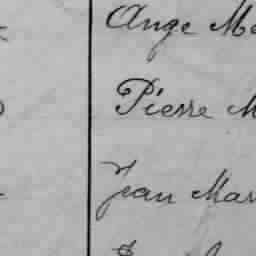 Ange M
Pierre M
Jean Mar